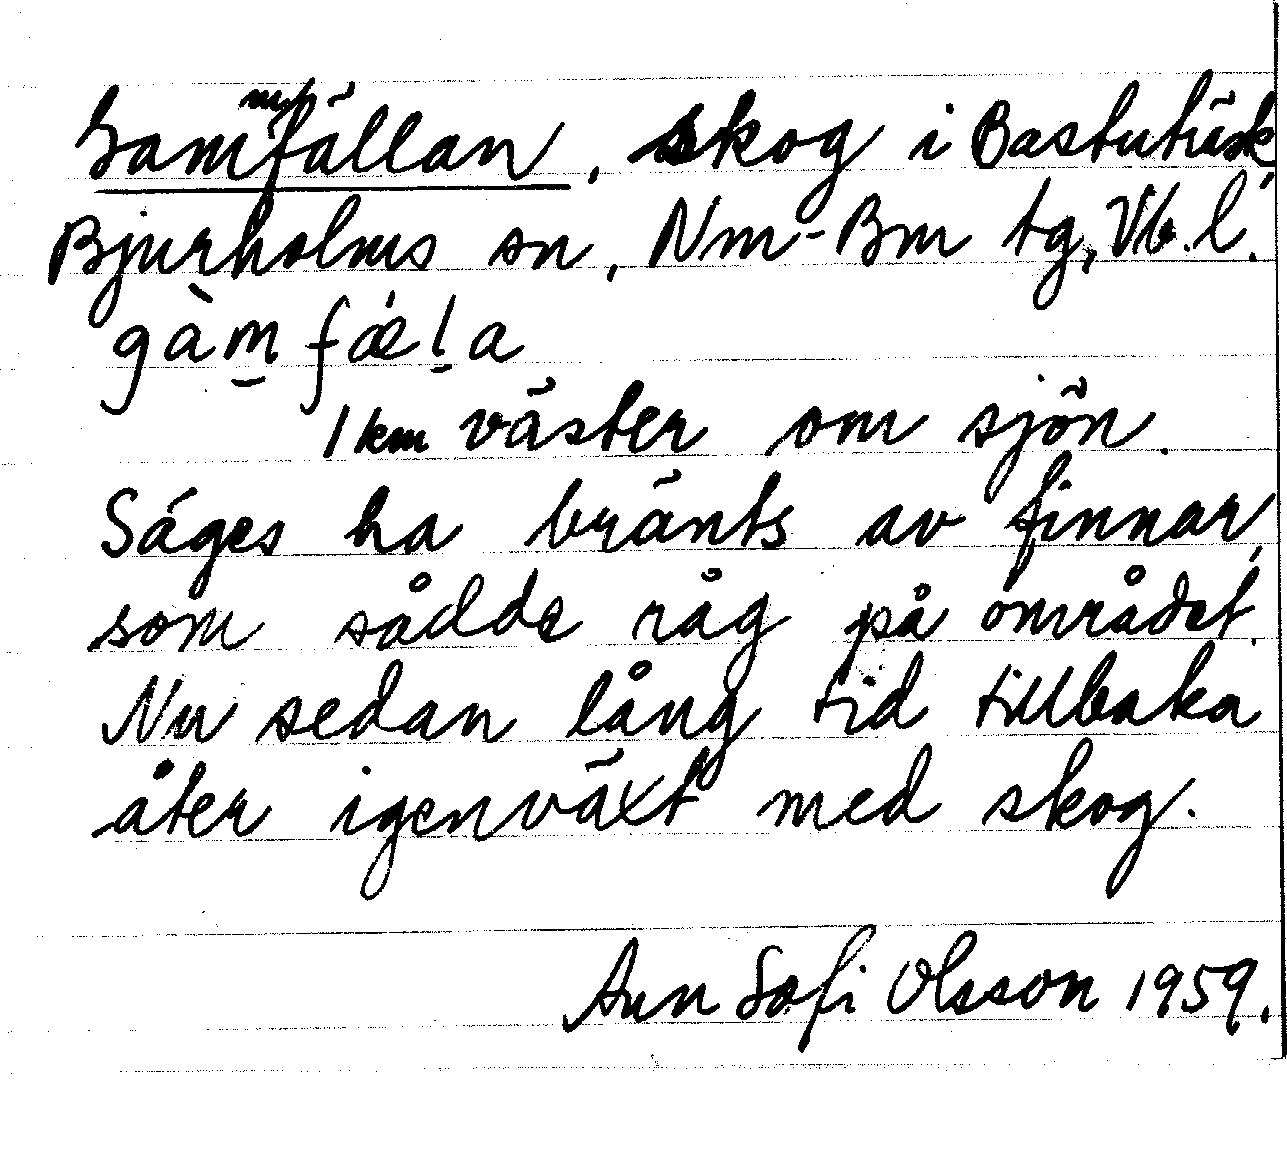 Gammfällan, skog i Bastuträsk,
Bjurholms sn, Nm-Bm tg, Vb. l.
gàm̲fǽl̲a
1 km väster om sjön.
Säges ha bränts av finnar,
som sådde råg på området.
Nu sedan lång tid tillbaka
åter igenväxt med skog.
Ann Sofi Olsson 1959.